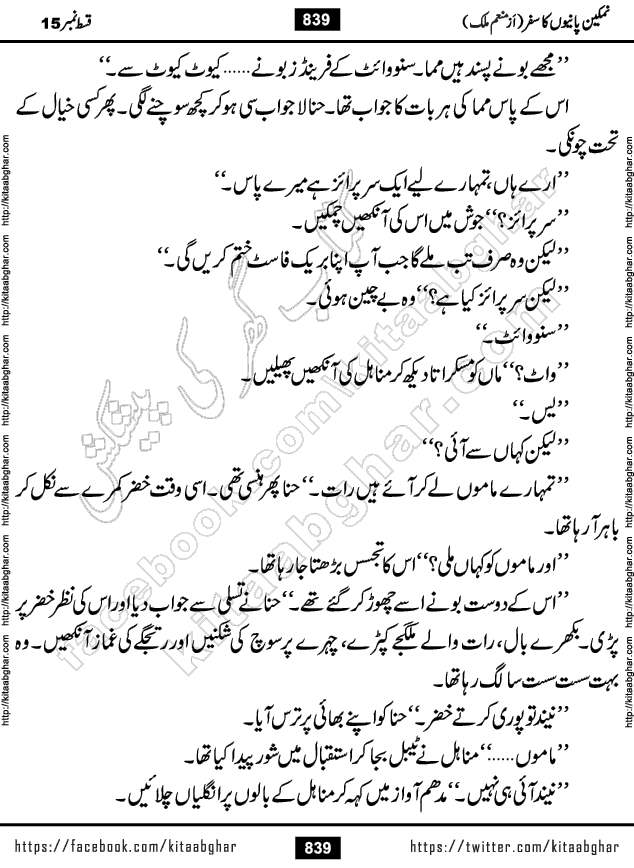 نمکین پانیوں کا سفر (از منعم ملک)
839
قسط نمبر 15
’’مجھے بونے پسند ہیں مما۔ سنووائٹ کے فرینڈز بونے...... کیوٹ کیوٹ سے۔‘‘
اس کے پاس مما کی ہر بات کا جواب تھا۔ حنا لا جواب سی ہو کر کچھ سوچنے لگی۔ پھر کسی خیال کے
تحت چونکی۔
’’ارے ہاں، تمہارے لیے ایک سرپرائز ہے میرے پاس۔‘‘
’’سرپرائز؟‘‘ جوش میں اس کی آنکھیں چمکیں۔
’’لیکن وہ صرف تب ملے گا جب آپ اپنا بریک فاسٹ ختم کریں گی۔‘‘
’’لیکن سرپرائز کیا ہے؟‘‘ وہ بے چین ہوئی۔
’’سنووائٹ۔‘‘
’’واٹ؟‘‘ ماں کو مسکراتا دیکھ کر مناہل کی آنکھیں پھیلیں۔
’’یس۔‘‘
’’لیکن کہاں سے آئی؟‘‘
’’تمہارے ماموں لے کر آئے ہیں رات۔‘‘ حنا پھر ہنسی تھی۔ اسی وقت خضر کمرے سے نکل کر
باہر آرہا تھا۔
’’اور ماموں کو کہاں ملی؟‘‘ اس کا تجسس بڑھتا جا رہا تھا۔
’’اس کے دوست بونے اسے چھوڑ کر گئے تھے۔‘‘ حنا نے تسلی سے جواب دیا اور اس کی نظر خضر پر
پڑی۔ بکھرے بال، رات والے ملگجے کپڑے، چہرے پر سوچ کی شکنیں اور رتجگے کی غماز آنکھیں۔ وہ
بہت سست سست سا لگ رہا تھا۔
’’نیند تو پوری کرتے خضر۔‘‘ حنا کو اپنے بھائی پر ترس آیا۔
’’ماموں......‘‘ مناہل نے ٹیبل بجا کر استقبال میں شور پیدا کیا تھا۔
’’نیند آئی ہی نہیں۔‘‘ مدھم آواز میں کہہ کر مناہل کے بالوں پر انگلیاں چلائیں۔
http://kitaabghar.com http://kitaabghar.com http://kitaabghar.com http://kitaabghar.com http://kitaabghar.com http://kitaabghar.com
http://kitaabghar.com http://kitaabghar.com http://kitaabghar.com http://kitaabghar.com http://kitaabghar.com http://kitaabghar.com
کتاب گھر کی پیشکش
facebook.com/kitaabghar
kitaabghar.com
https://facebook.com/kitaabghar
839
https://twitter.com/kitaabghar